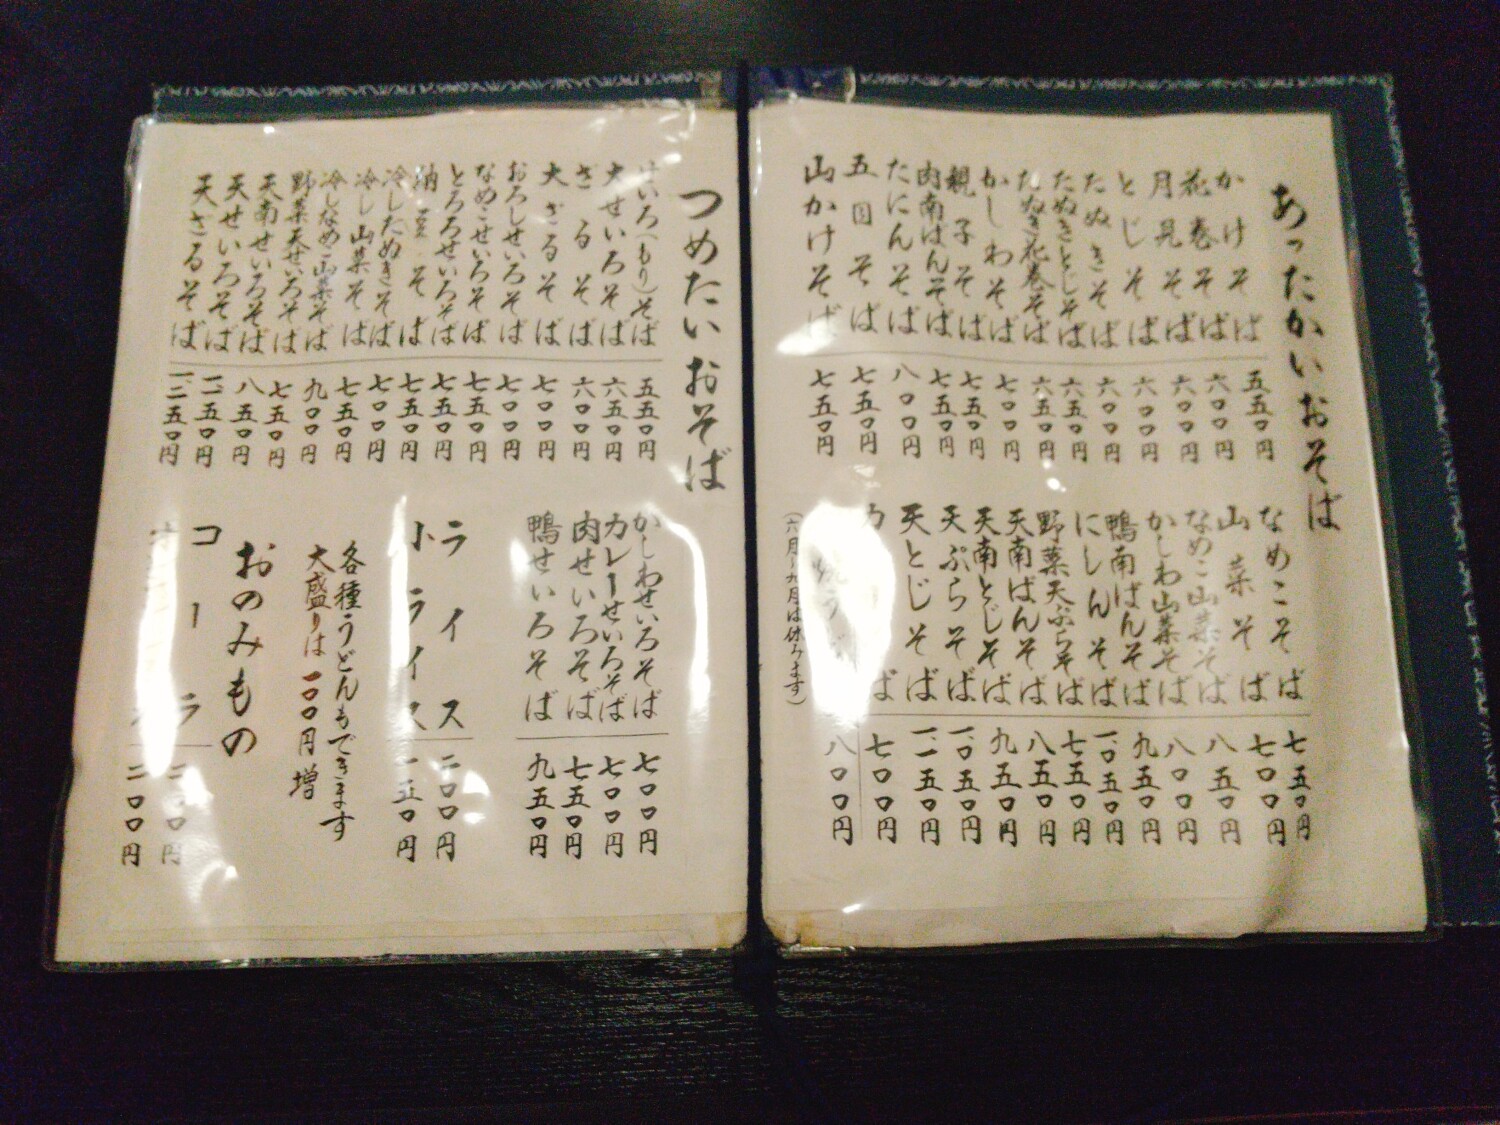 あったかいおそば
かけそば 五五〇円
花巻そば 六〇〇円
月見そば 六〇〇円
とじそば 六〇〇円
たぬきそば 六〇〇円
たぬきとじそば 六五〇円
たぬき花巻そば 六五〇円
かしわそば 七〇〇円
親子そば 七五〇円
肉南ばんそば 七五〇円
たにんそば 八〇〇円
五目そば 七五〇円
山かけそば 七五〇円
なめこそば 七五〇円
山菜そば 七〇〇円
なめこ山菜そば 八五〇円
かしわ山菜そば 八〇〇円
鴨南ばんそば 九五〇円
にしんそば 一、〇五〇円
野菜天ぷらそば 七五〇円
天南ばんそば 八五〇円
天南とじそば 九五〇円
天ぷらそば 一、〇五〇円
天とじそば 一、一五〇円
力そば 七〇〇円
焼うどん 八〇〇円
(六月〜九月は休みます)
つめたいおそば
せいろ(もり)そば 五五〇円
大せいろそば 六五〇円
ざるそば 六〇〇円
大ざるそば 七〇〇円
おろしせいろそば 七〇〇円
なめこせいろそば 七五〇円
とろろせいろそば 七五〇円
納豆そば 七五〇円
冷したぬきそば 七〇〇円
冷し山菜そば 七五〇円
冷しなめこ山菜そば 九〇〇円
野菜天せいろそば 七五〇円
天南せいろそば 八五〇円
天せいろそば 一、一五〇円
天ざるそば 一、二五〇円
かしわせいろそば 七〇〇円
カレーせいろそば 七〇〇円
肉せいろそば 七五〇円
鴨せいろそば 九五〇円
ライス 二〇〇円
小ライス 一五〇円
各種うどんもできます
大盛りは 一〇〇円 増
おのみもの
コーラ 二〇〇円
二〇〇円